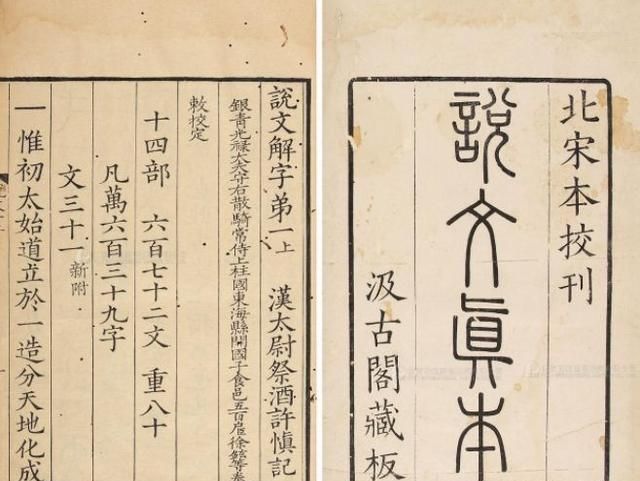 北宋本挍刊
說文眞本
汲古閣藏板
說文解字弟一上 漢太尉祭酒許慎記
銀青光祿大夫守右散騎常侍上柱國東海縣開國子食邑五百戶徐鉉等奉
敕挍定
十四部 六百七十二文 重八十
凡萬六百三十九字
文三十一 新附
一 惟初太始道立於一造分天地化成